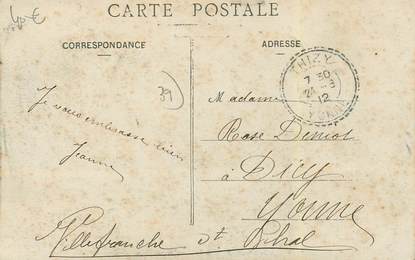 40 €
CARTE POSTALE
CORRESPONDANCE
ADRESSE
THIZY
7 30
24 -8
12
YONNE
39
Je vous embrasse bien
Jeanne
Madame
Rose Deniot
à Dicy
Yonne
Villefranche St Phal